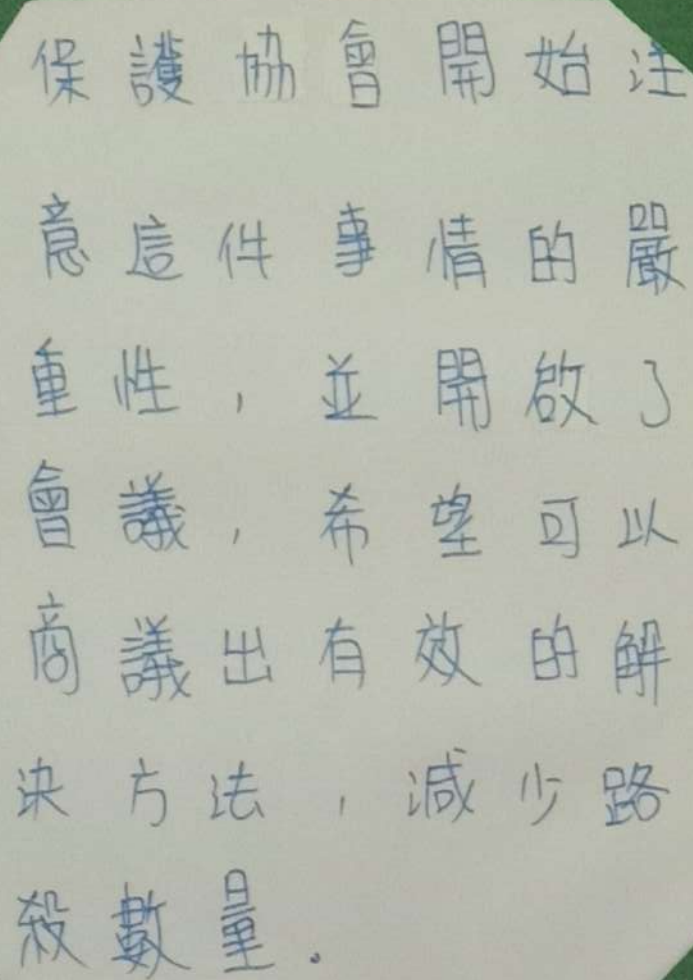 保護協會開始注
意這件事情的嚴
重性，並開啟了
會議，希望可以
商議出有效的解
決方法，減少路
殺數量。